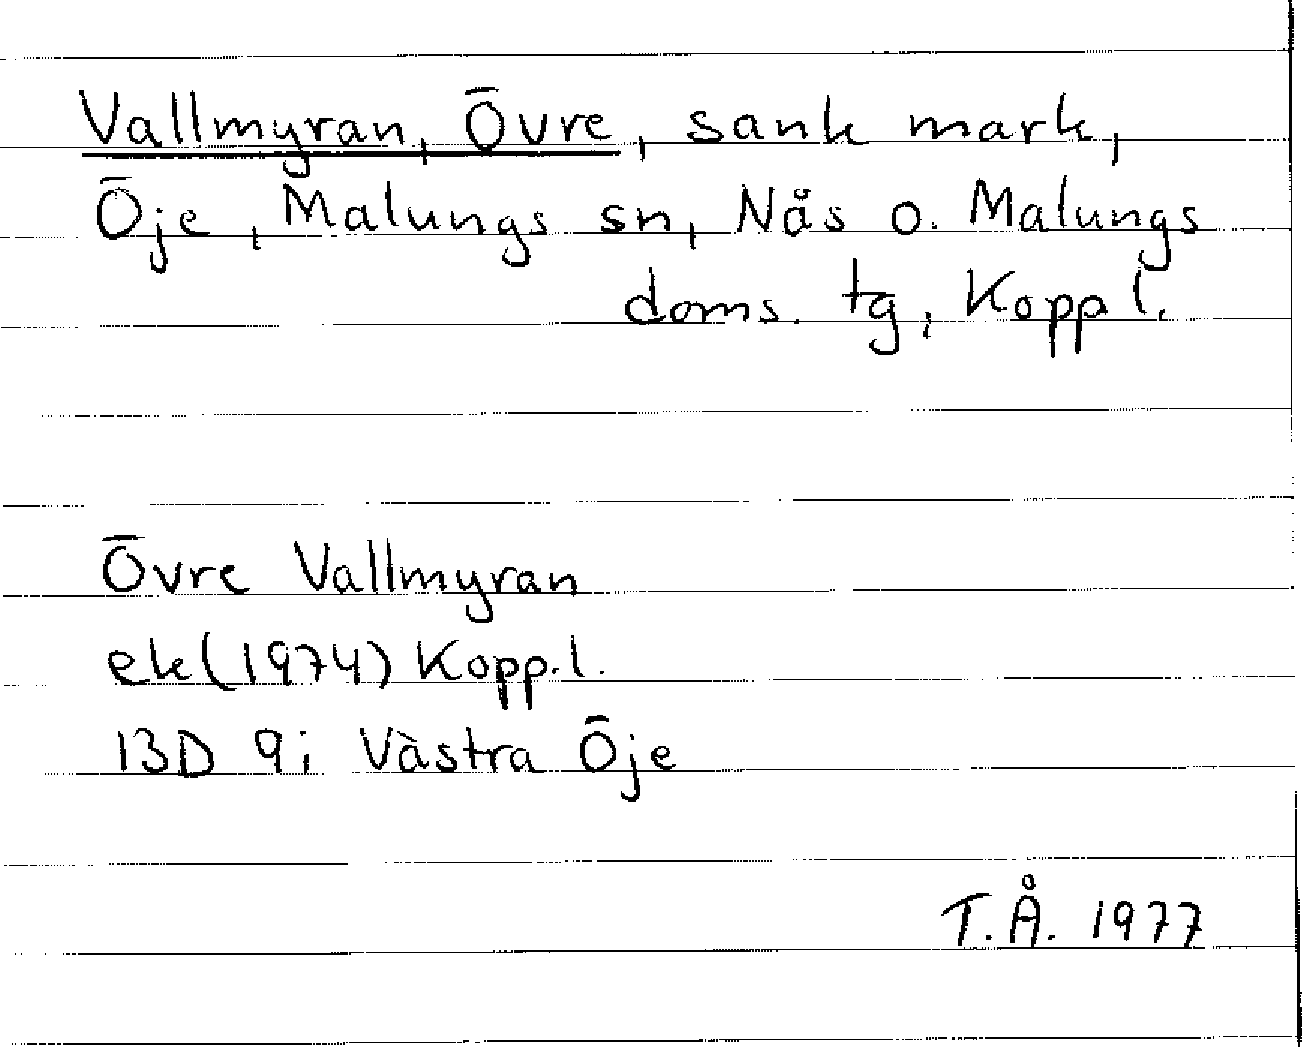 Vallmyran, Övre, sank mark,
Öje, Malungs sn, Nås o. Malungs
doms. tg, Kopp l.
Övre Vallmyran
ek (1974) Kopp.l.
13D 9i Västra Öje
T.Å. 1977